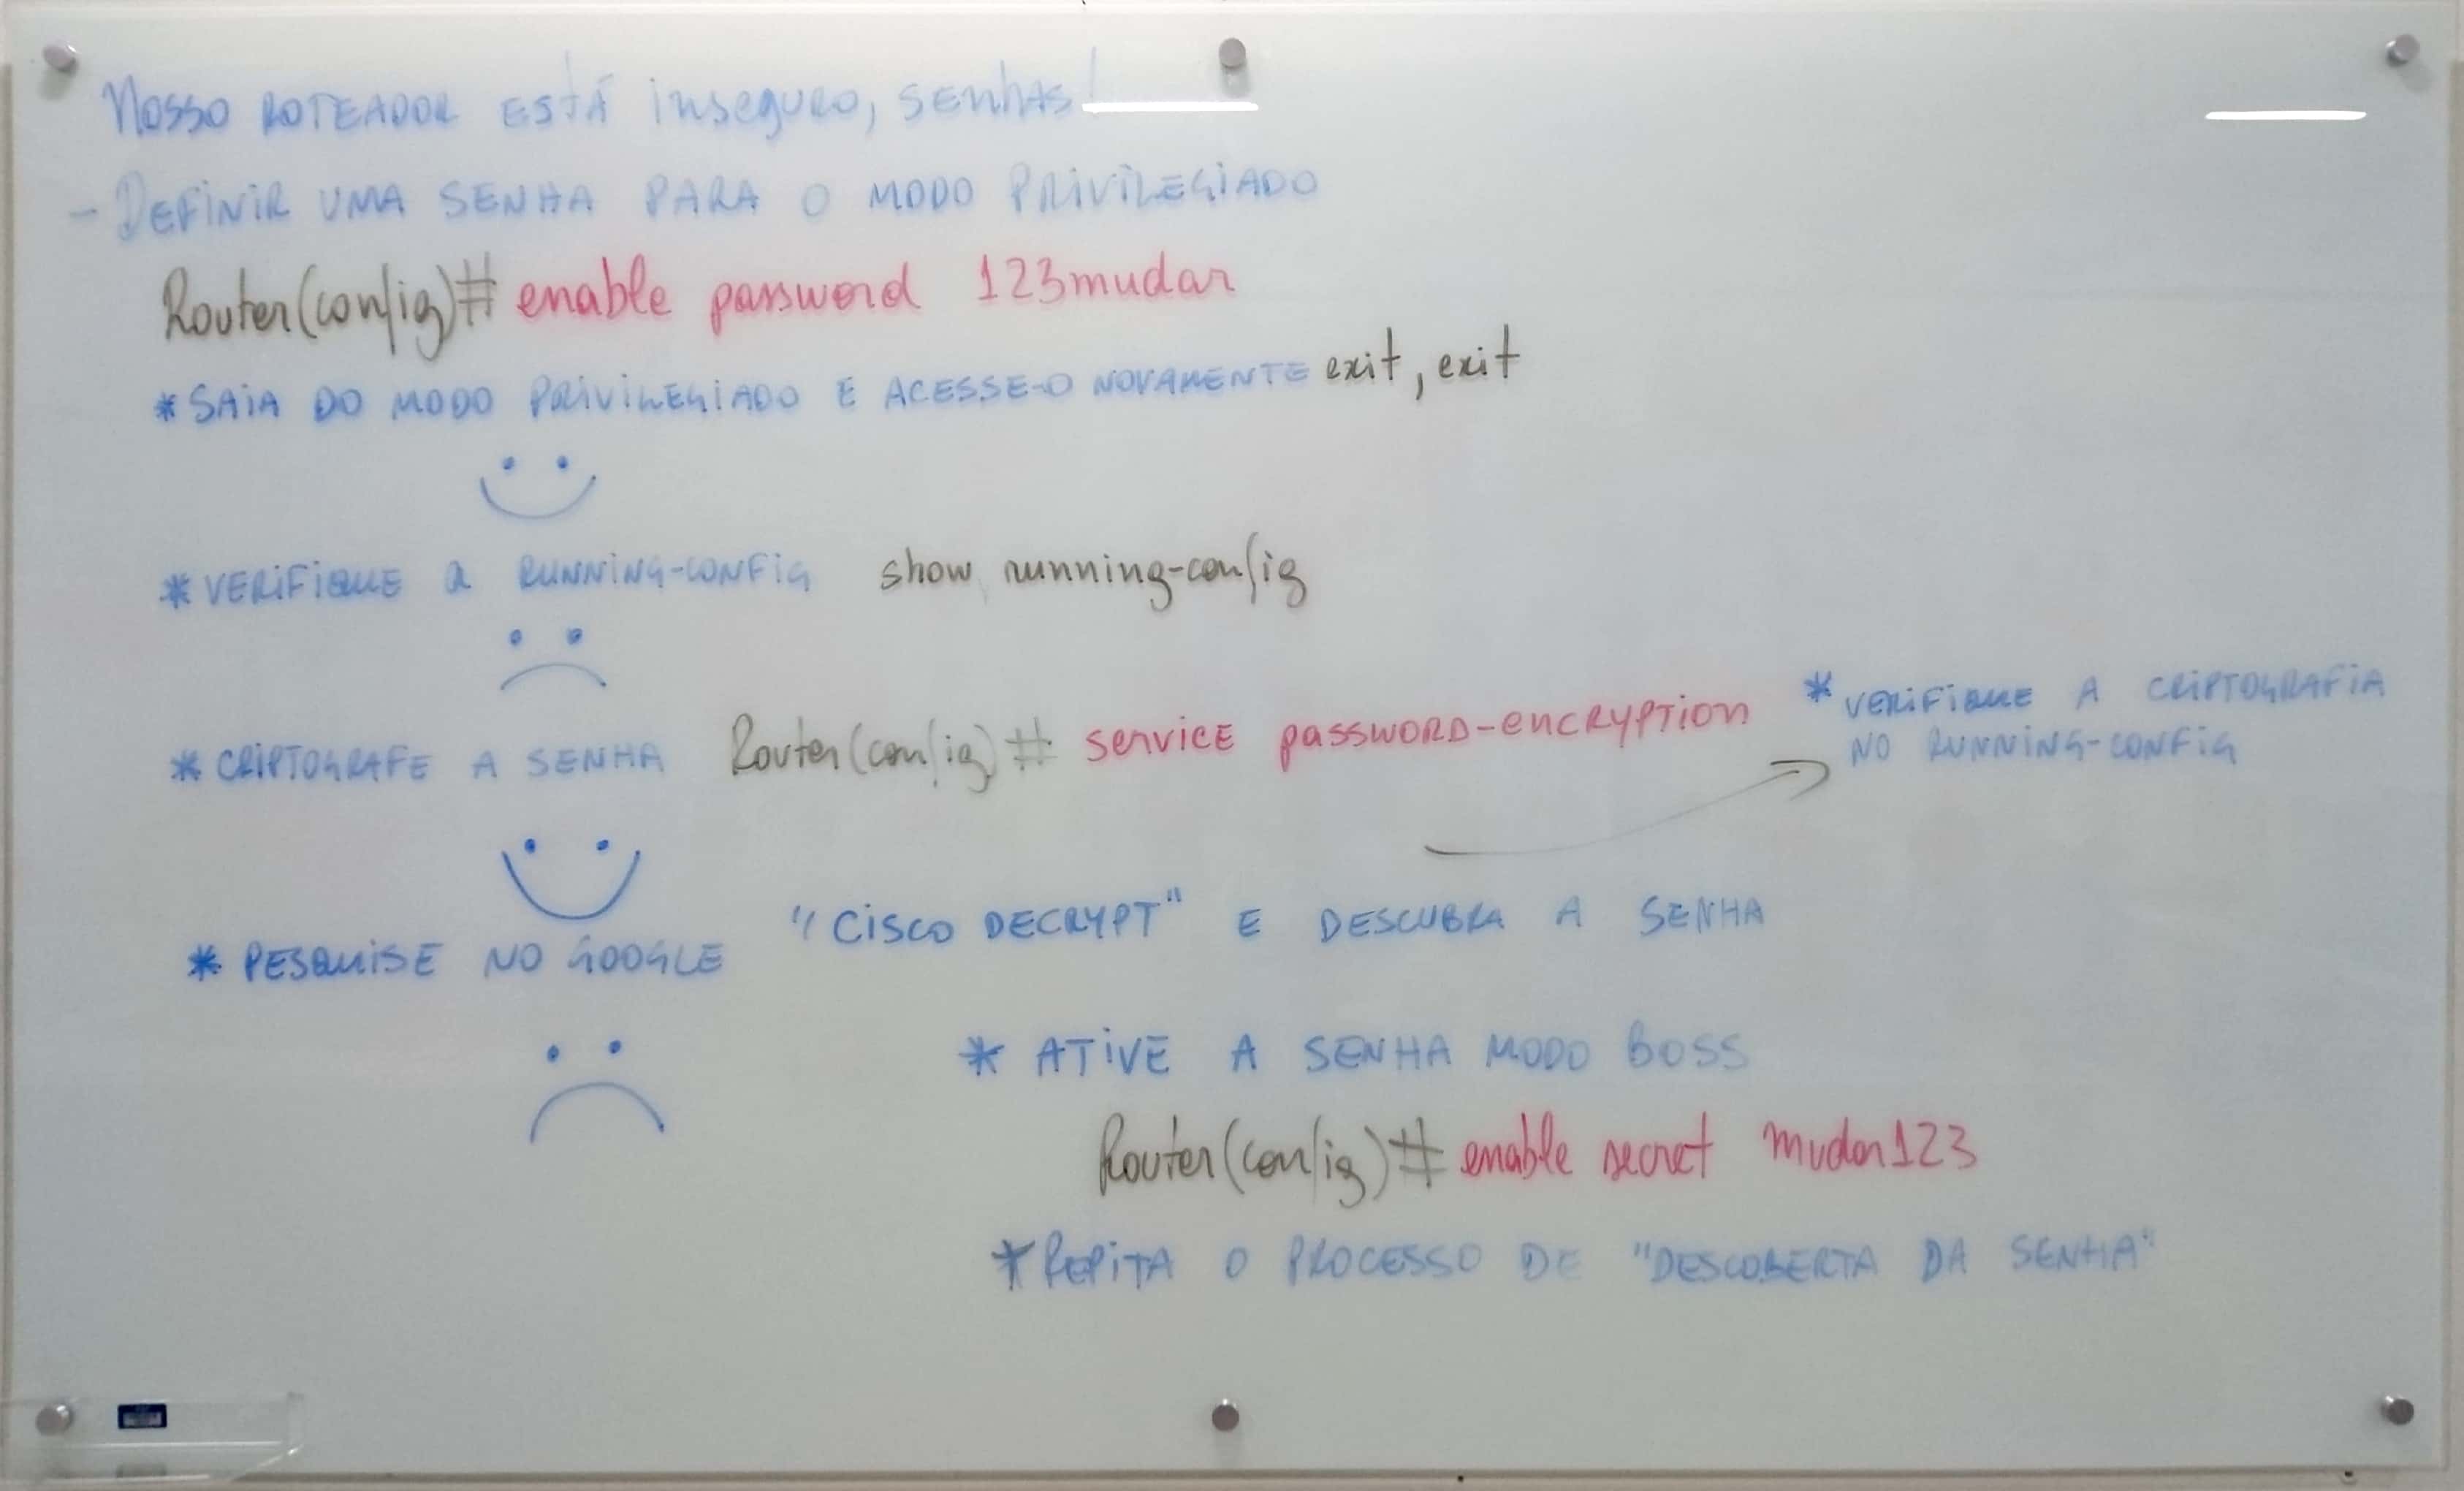 Nosso ROTEADOR ESTÁ inseguro, senhas!
- DEFINIR UMA SENHA PARA O MODO PRIVILEGIADO
Router(config)# enable password 123mudar
* SAIA DO MODO PRIVILEGIADO E ACESSE-O NOVAMENTE exit, exit
* VERIFIQUE a RUNNING-CONFIG show running-config
* CRIPTOGRAFE A SENHA Router(config)# service password-encryption
* VERIFIQUE A CRIPTOGRAFIA
NO RUNNING-CONFIG
* PESQUISE NO GOOGLE "CISCO DECRYPT" E DESCUBRA A SENHA
* ATIVE A SENHA MODO BOSS
Router(config)# enable secret mudar123
* REPITA O PROCESSO DE "DESCOBERTA DA SENHA"